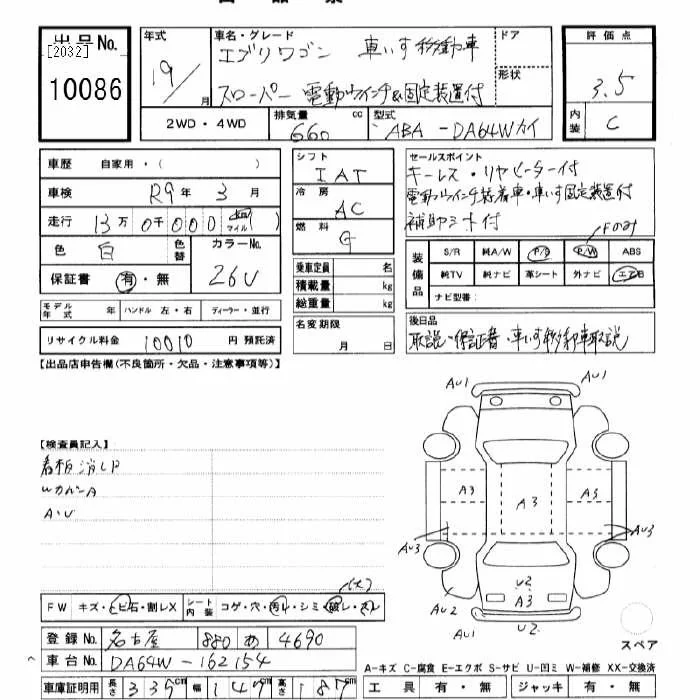 出品票
出品No.
[2032]
10086
年式
19/
月
車名・グレード
エブリワゴン 車いす移動車
スローパー 電動ウインチ&固定装置付
ドア
形状
2WD・4WD
排気量
660
cc
型式
ABA-DA64Wカイ
評価点
3.5
内装
C
車歴 自家用・( )
車検 R9年 3月
走行 13万 0千000 km マイル
色 白 色替 カラーNo.
26U
保証書 有・無
モデル年式 年 ハンドル 左・右 ディーラー・並行
リサイクル料金 10010 円 預託済
シフト
IAT
冷房
AC
燃料
G
乗車定員 名
積載量 kg
総重量 kg
名変期限
月 日
セールスポイント
キーレス・リヤヒーター付
電動ウインチ装着車・車いす固定装置付
補助シート付
Fのみ
装備品
S/R 純A/W P/S P/W ABS
純TV 純ナビ 革シート 外ナビ エアB
ナビ型番:
後日品
取説・保証書・車いす移動車取説
【出品店申告欄(不良箇所・欠品・注意事項等)】
【検査員記入】
看板消しP
A・U
AU1
AU1
A3
A3
A3
AU3
AU3
U2
A3
AU2
AU1
U2
AU2
スペア
FW キズ・ヒビ石・割レX シート内装 コゲ・穴・汚レ・シミ・破レ・スレ
登録No. 名古屋 880 あ 4690
車台No. DA64W-162154
車庫証明用 長さ 339cm 幅 147cm 高さ 187cm
A-キズ C-腐食 E-エクボ S-サビ U-凹ミ W-補修 XX-交換済
工具 有・無 ジャッキ 有・無